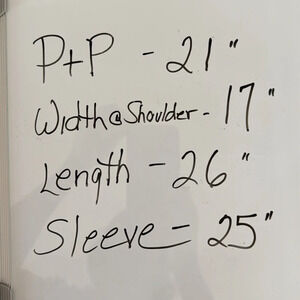 P+P - 21"
Width@Shoulder - 17"
Length - 26"
Sleeve - 25"